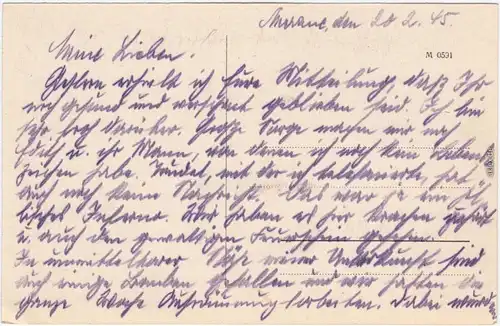 Meerane, den 20 2. 45.
M 0591
Meine Lieben.
Gestern erhielt ich Eure Mitteilung, daß Ihr
noch gesund und verschont geblieben seid. Ich bin
sehr froh darüber. Große Sorge machen mir noch
Edith u. ihr Mann, von denen ich noch kein Lebens-
zeichen habe. Trudel, mit der ich telefonierte, hat
auch noch keine Nachricht. Das war ja ein
Inferno. Wir haben es hier krachen gehört
u. auch den gewaltigen Feuerschein gesehen.
In unmittelbarer Nähe meiner Unterkunft sind
auch einige Bomben gefallen und wir hatten die
ganze Woche Aufräumungsarbeiten. Dabei wurde